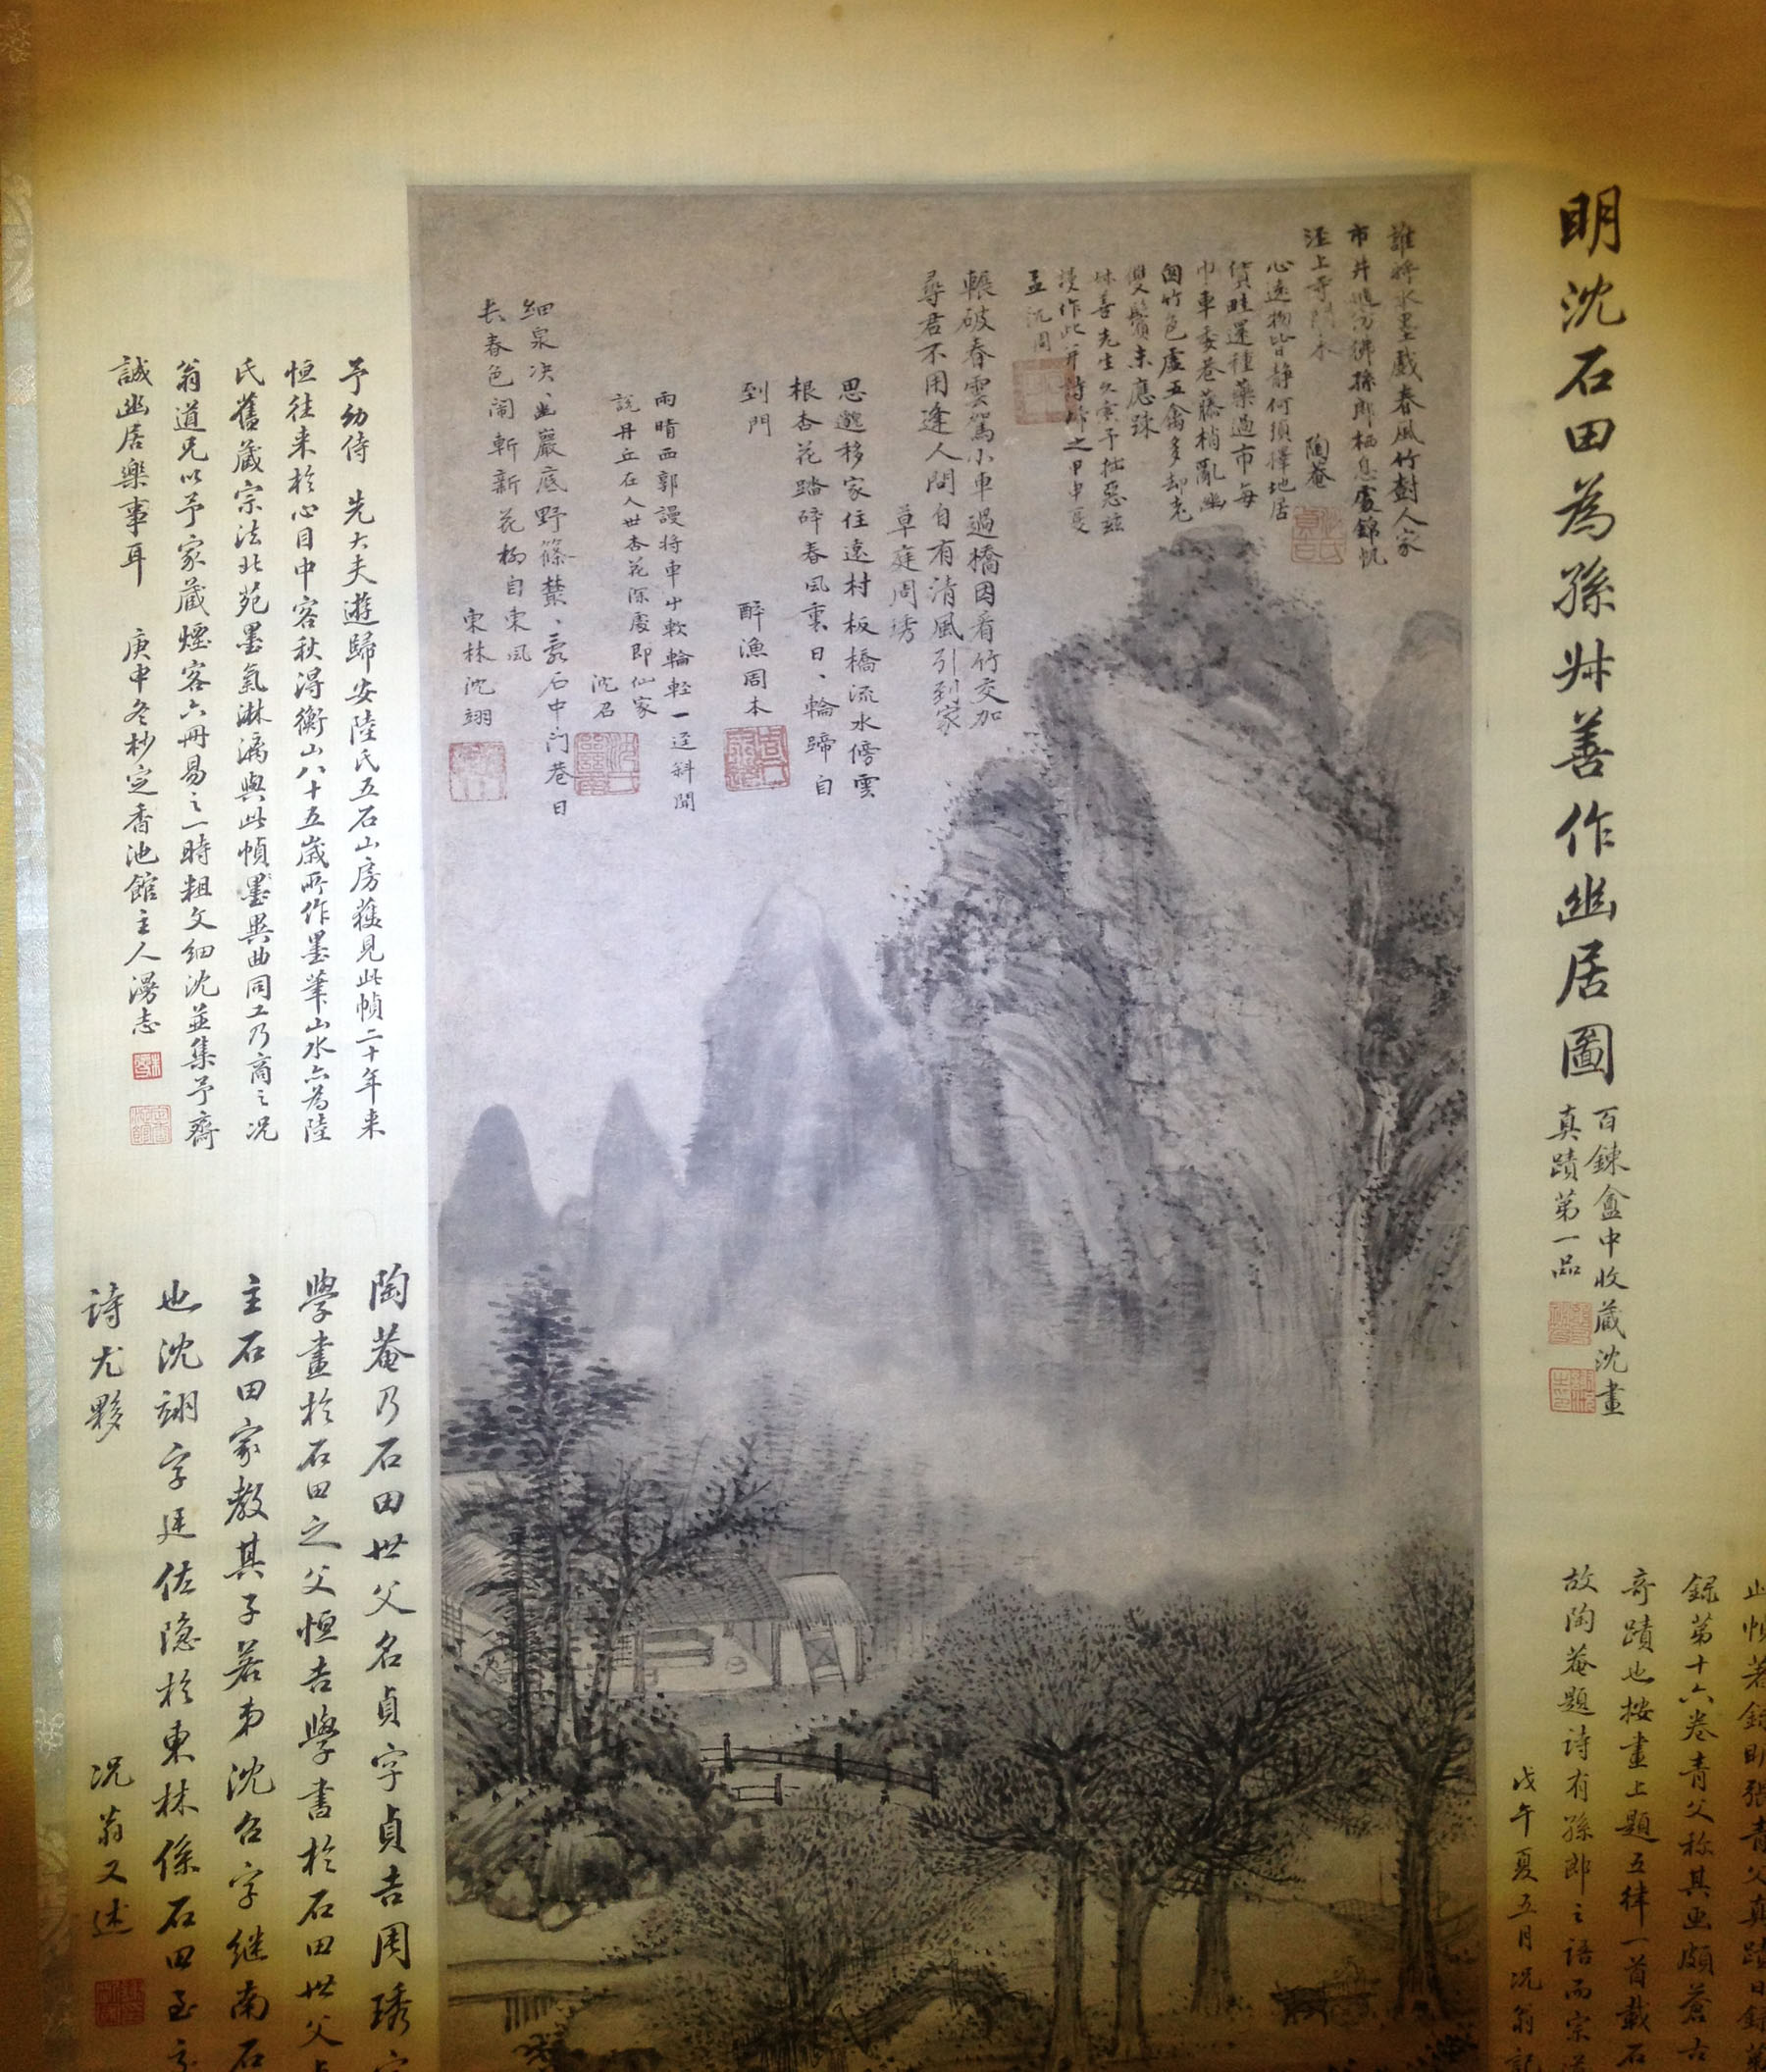 明沈石田為孫牀善作幽居圖
百鍊盦中收藏沈畫
真蹟第一品
誰將水墨戲春風竹樹人家
市井邊彷彿孫郎栖息處錦帆
涇上寺門水 陶菴
心遠物皆靜何須擇地居
貨畦還種藥過市每
巾車委巷藤梢亂幽
窗竹色虛五禽多却老
雙鬢未應疎
善先生久索予拙惡茲
漫作此并詩歸之甲申夏
孟沈周
輾破春雲駕小車過橋因看竹交加
尋君不用逢人問自有清風引到家
草庭周琇
思邈移家住遠村板橋流水傍雲
根杏花踏碎春風裏日、輪蹄自
到門 醉漁周本
雨晴西郭謾將車巾軟輪輕一逕斜聞
說丹丘在人世杏花深處即仙家
沈召
細泉決、幽巖底野篠叢、亂石中門巷日
長春色鬧斬新花柳自東風
東林沈翊
予幼侍 先大夫遊歸安陸氏五石山房獲見此幀二十年来
恒往来於心目中客秋得衡山八十五歲所作墨筆山水亦為陸
氏舊藏宗法北苑墨氣淋漓與此幀異曲同工乃商之况
翁道兄以予家藏煙客六冊易之一時粗文細沈並集予齋
誠幽居樂事耳 庚申冬杪定香池館主人漫志
此幀著錄明張青父真蹟日錄
錄第十六卷青父称其画頗蒼古
奇蹟也按畫上題五律一首載石
故陶菴題詩有孫郎之語而宗
戊午夏五月况翁記
陶菴乃石田世父名貞字貞吉周琇字
學畫於石田之父恒吉學書於石田世父
主石田家教其子若弟沈召字继南石
也沈翊字廷佐隐於東林係石田
詩尤夥 况翁又述